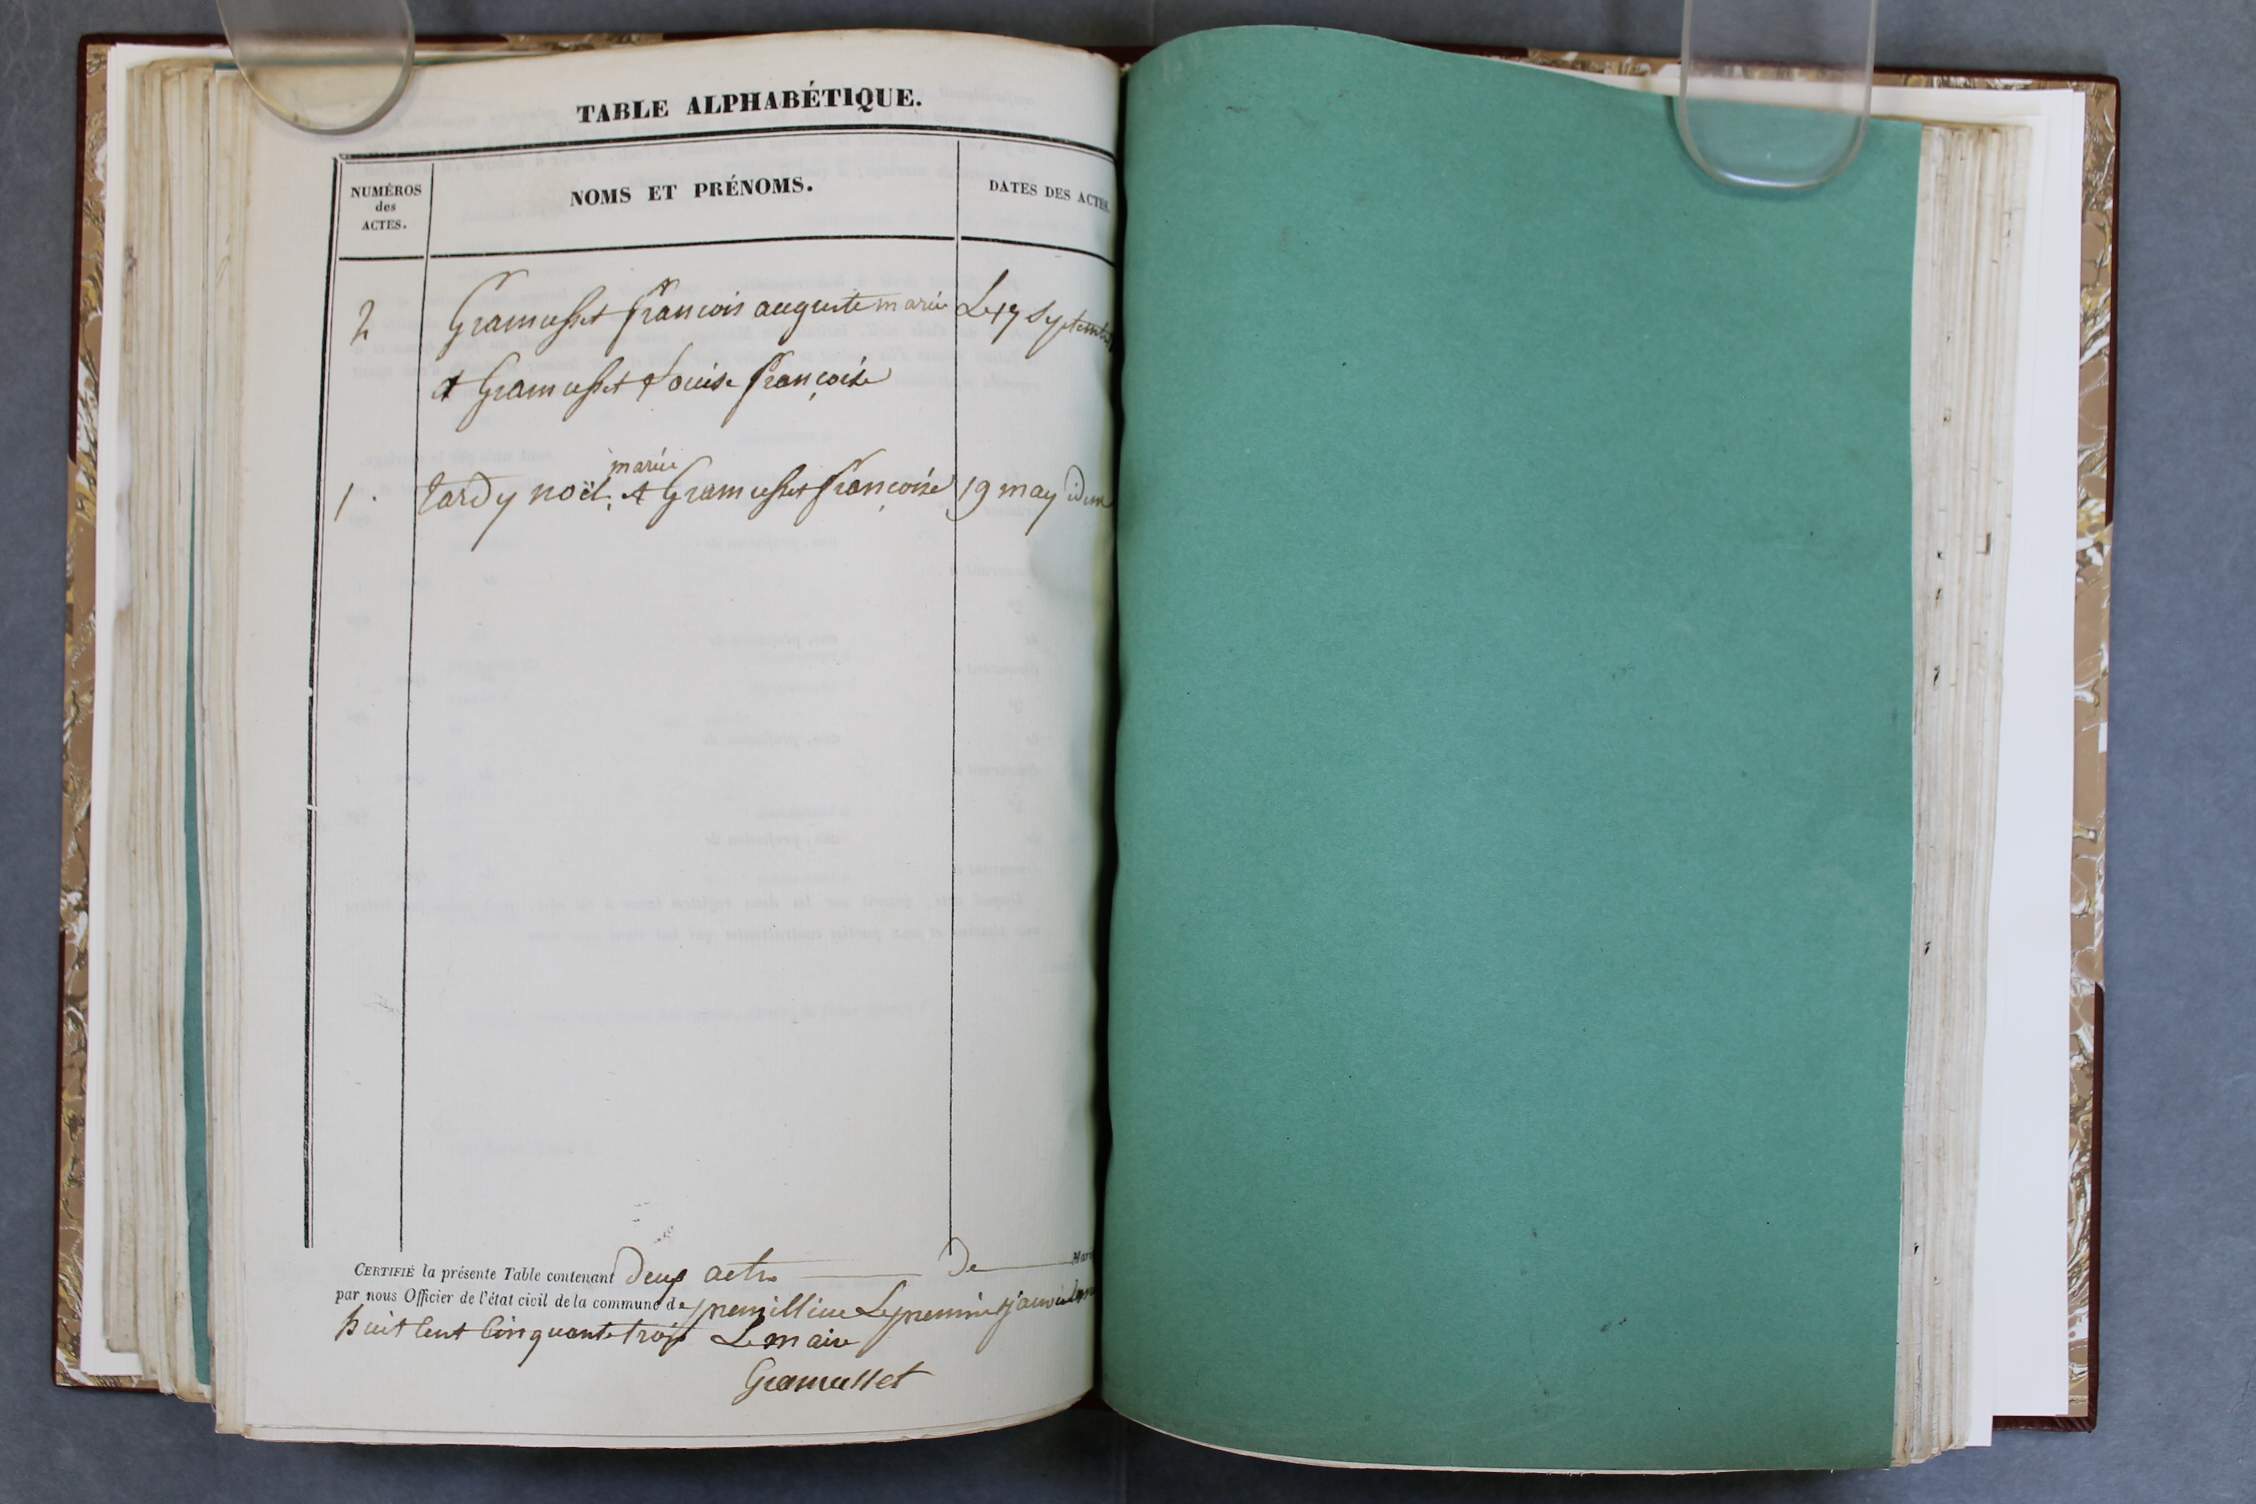 TABLE ALPHABÉTIQUE.
NUMÉROS
des
ACTES.
NOMS ET PRÉNOMS.
DATES DES ACTES.
2 Gramusset francois auguste marié Le 17 Septembre
et Gramusset Louise françoise
marié
1. tardy noël et Gramusset françoise 19 may idem
CERTIFIÉ la présente Table contenant deux actes de Mari
par nous Officier de l'état civil de la commune de premillieu Le premier janvier
huit cent Cinquante trois Le maire
Gramusset